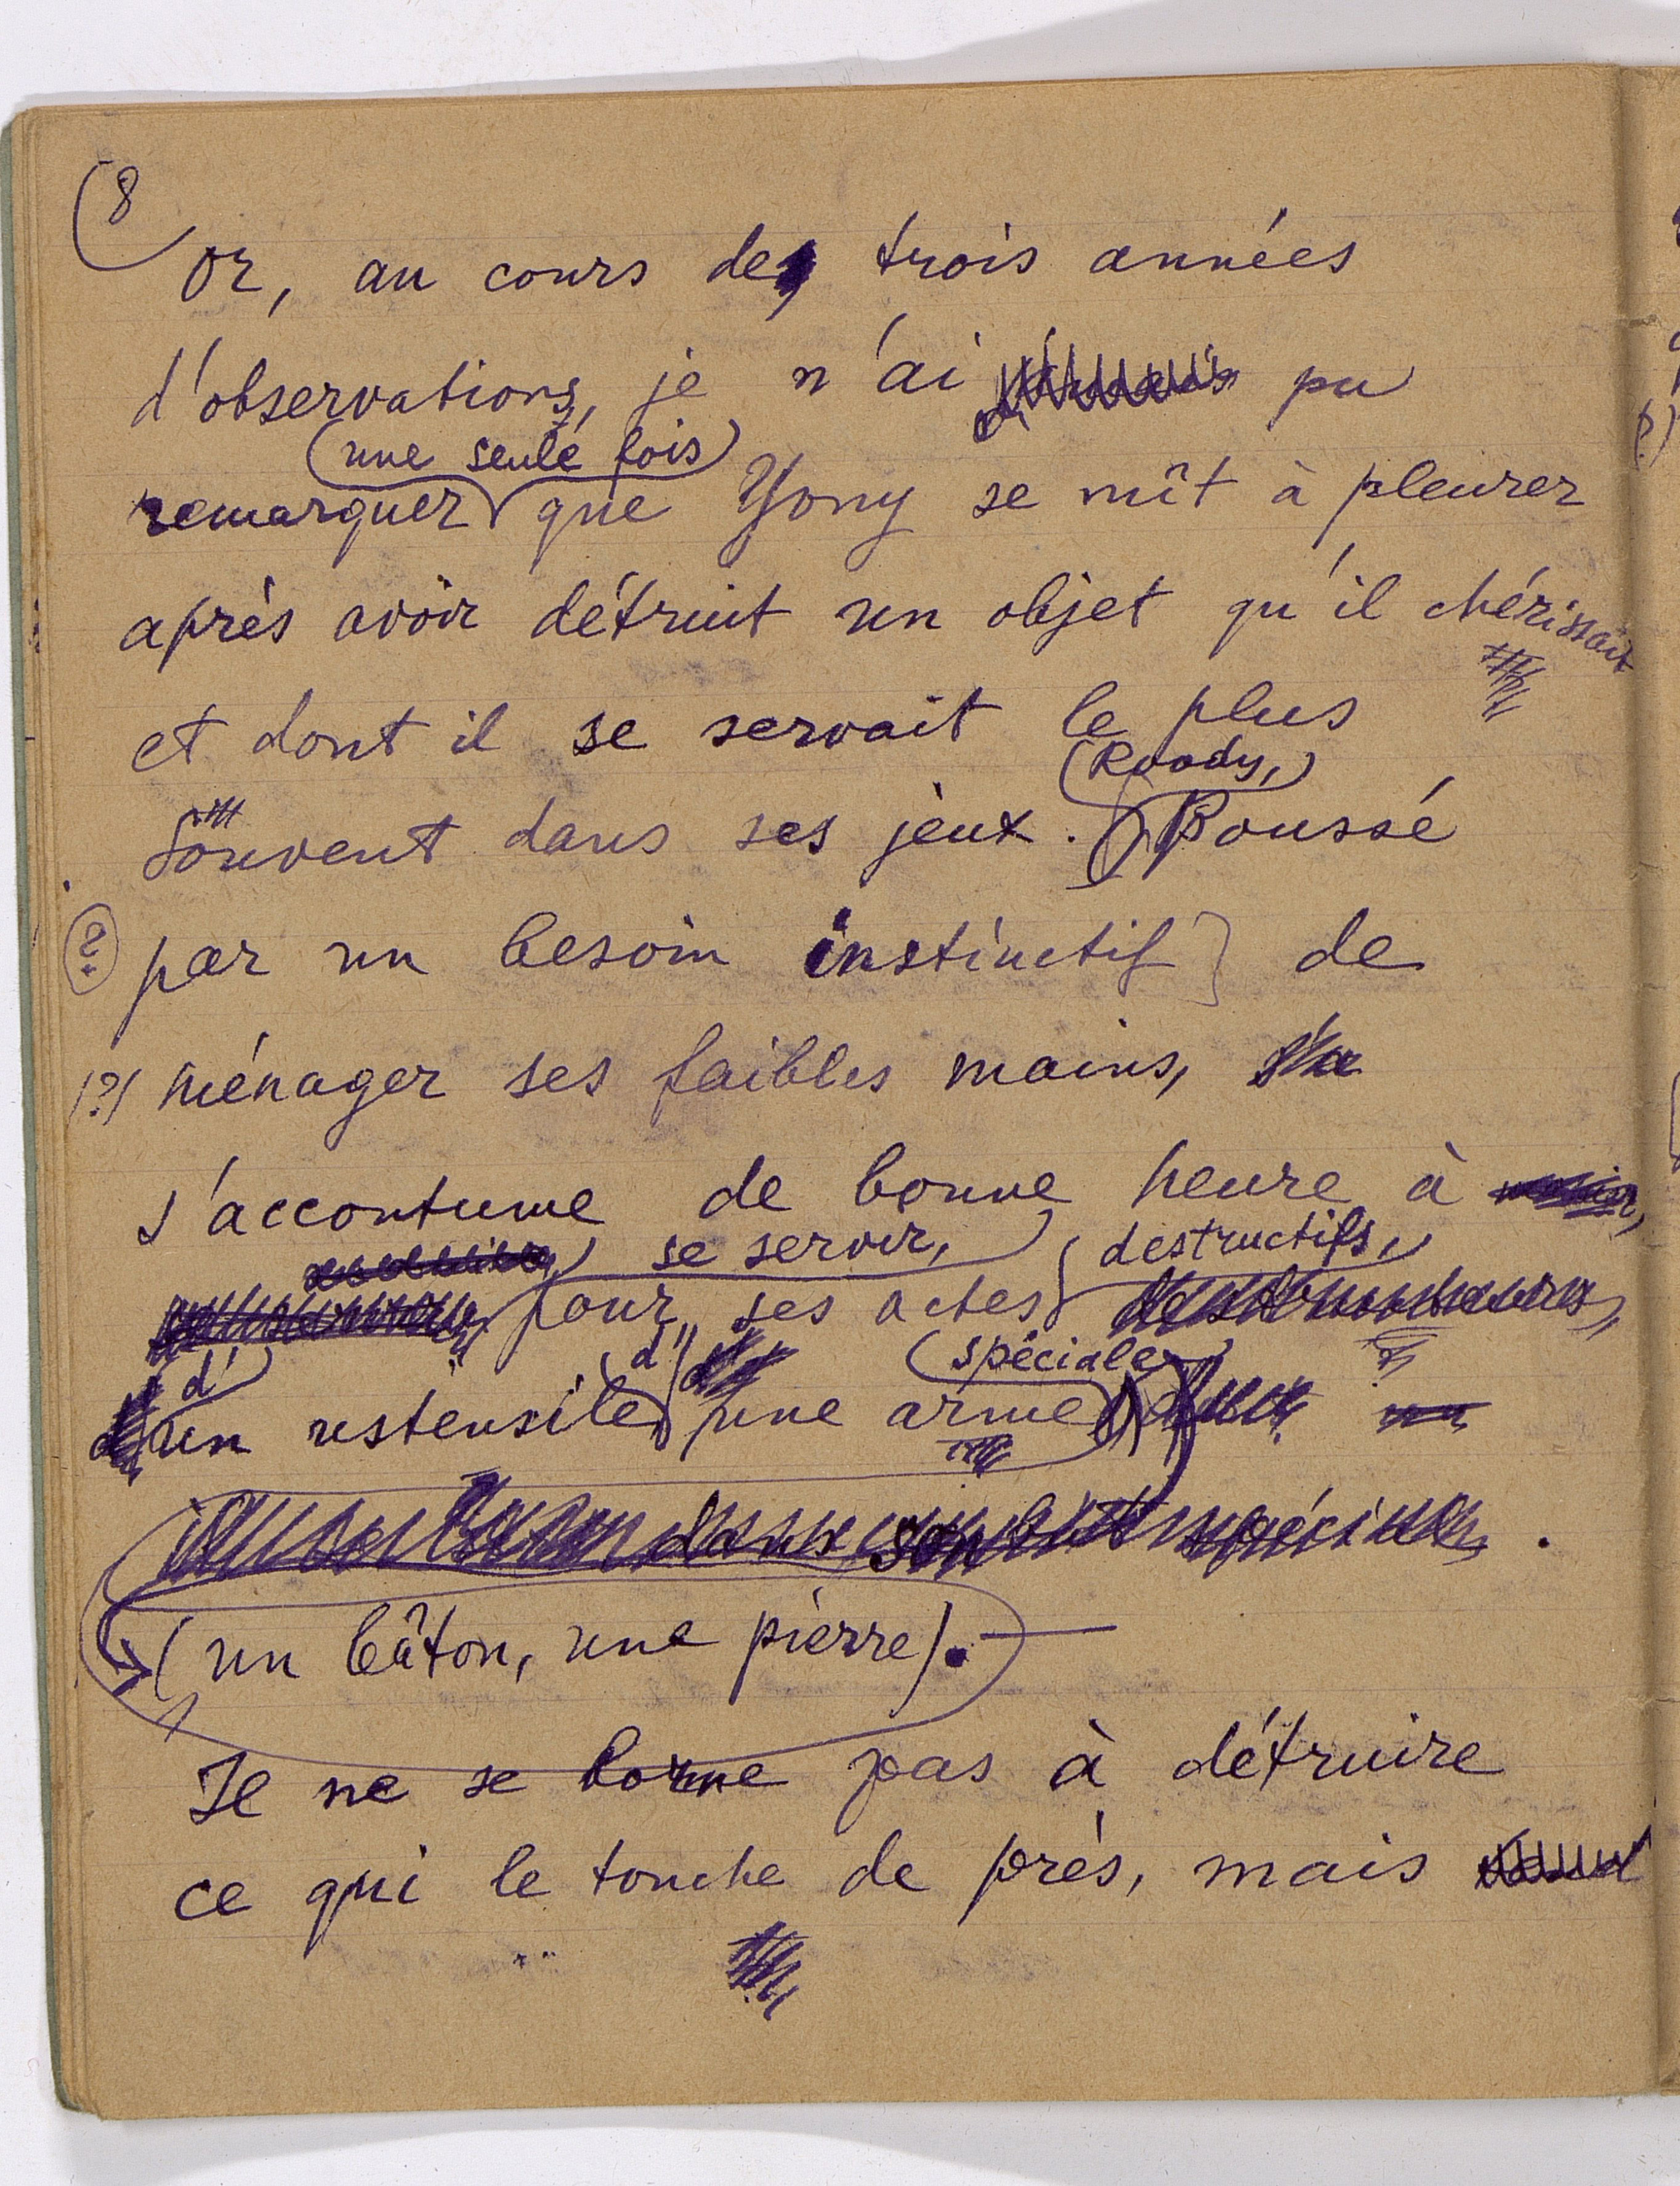 8
Or, au cours de trois années
d'observations, je n'ai pu
(une seule fois)
remarquer que Yony se mît à pleurer
après avoir détruit un objet qu'il chérissait
et dont il se servait le plus
(Roody,)
souvent dans ses jeux. Poussé
(?) par un besoin instinctif] de
(?) ménager ses faibles mains,
s'accoutume de bonne heure à
se servir, destructifs,
pour ses actes
d' d' spéciale
un ustensile, une arme
.
(un bâton, une pierre). —
Il ne se borne pas à détruire
ce qui le touche de près, mais